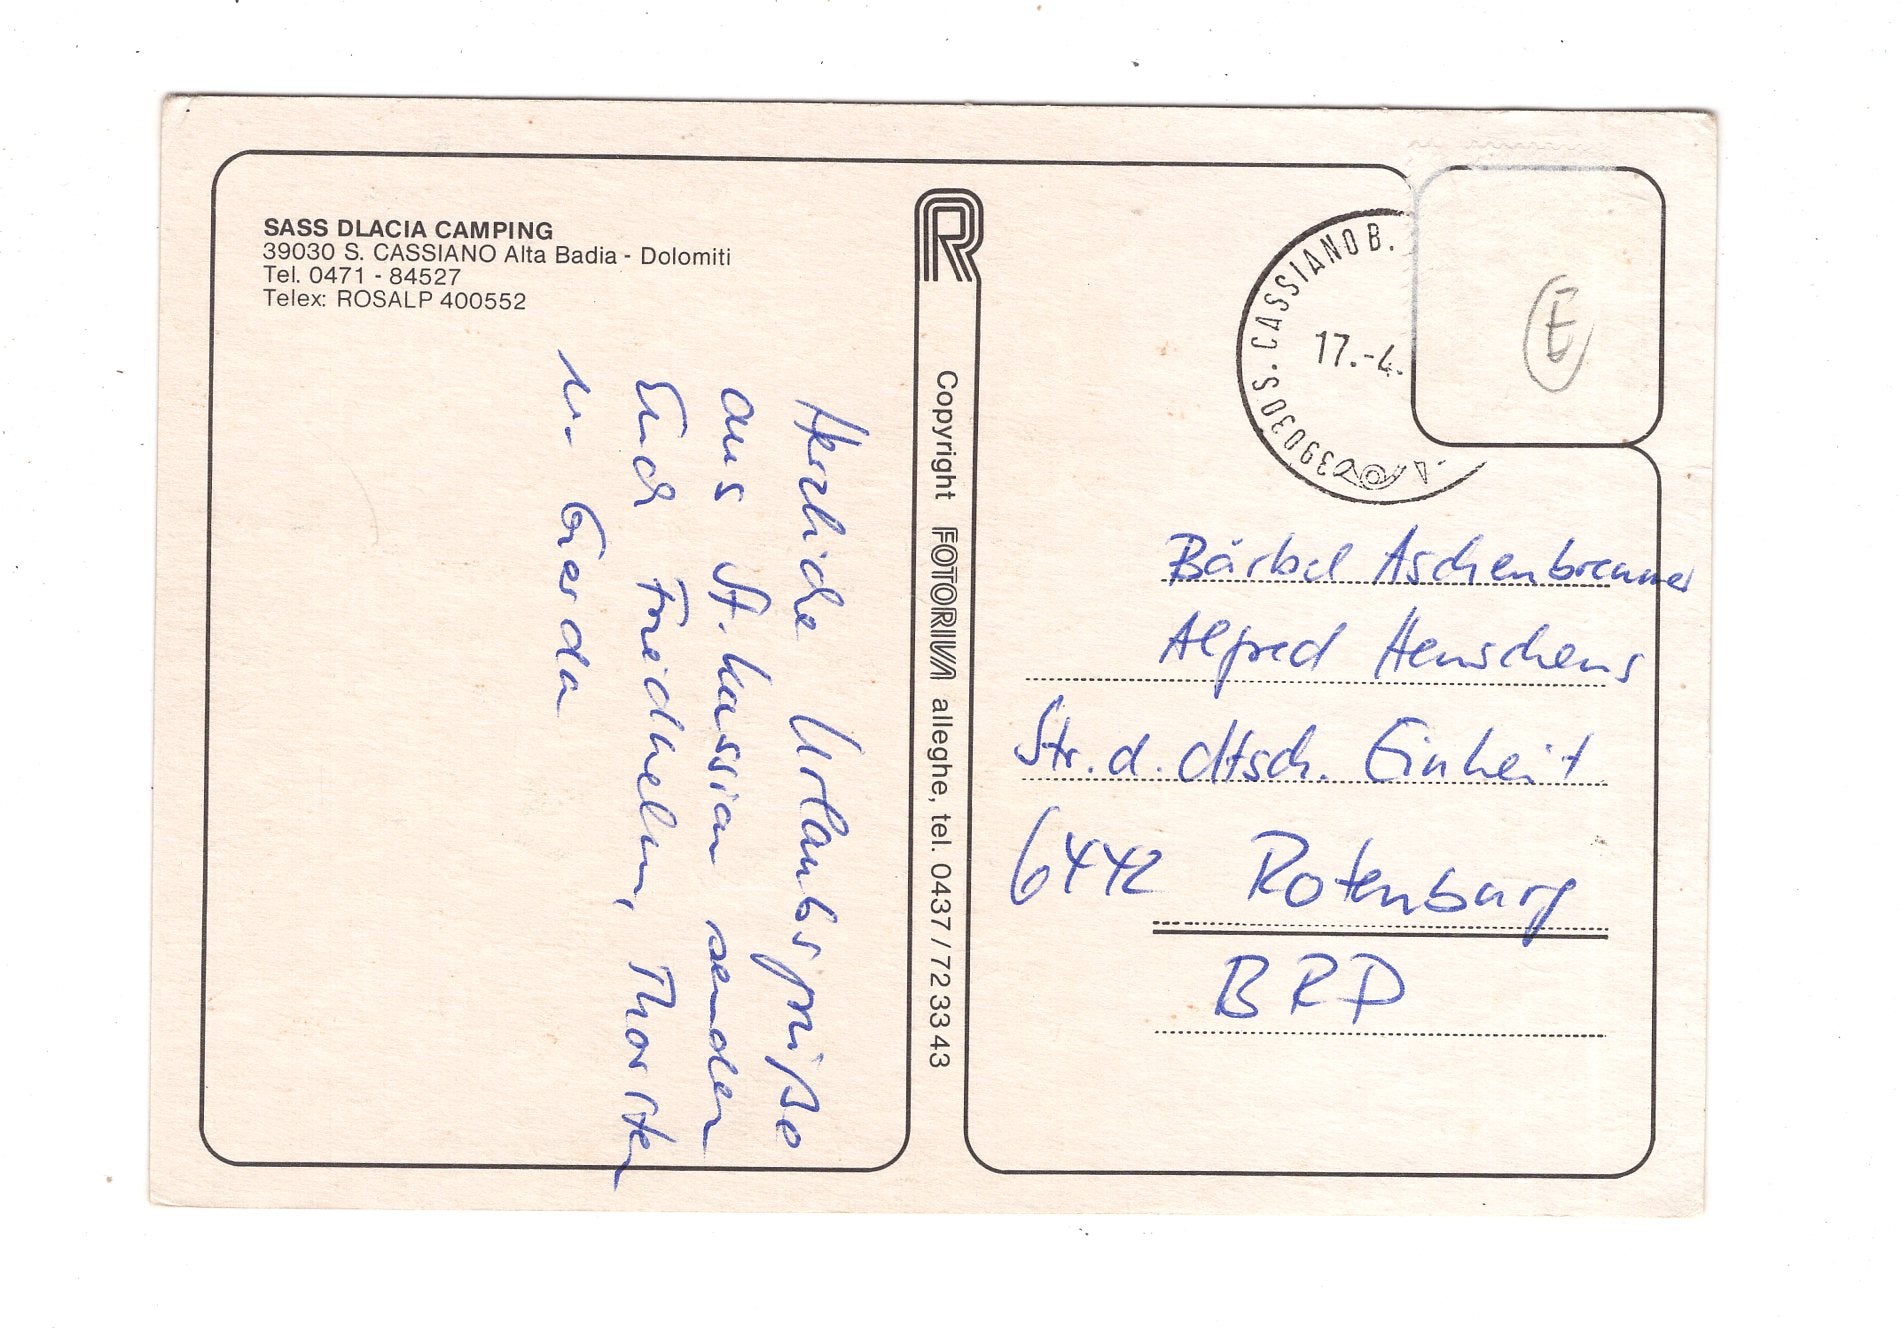 SASS DLACIA CAMPING
39030 S. CASSIANO Alta Badia - Dolomiti
Tel. 0471 - 84527
Telex: ROSALP 400552
Herzliche Urlaubsgrüße
aus St. Kassian senden
Euch Friedhelm, Thorsten
u. Gerda
R
Copyright FOTORIVA alleghe, tel. 0437 / 72 33 43
39030 S. CASSIANO B.
17.-4.
E
Bärbel Aschenbrenner
Alfred Henschens
Str. d. dtsch. Einheit
6442 Rotenburg
BRD